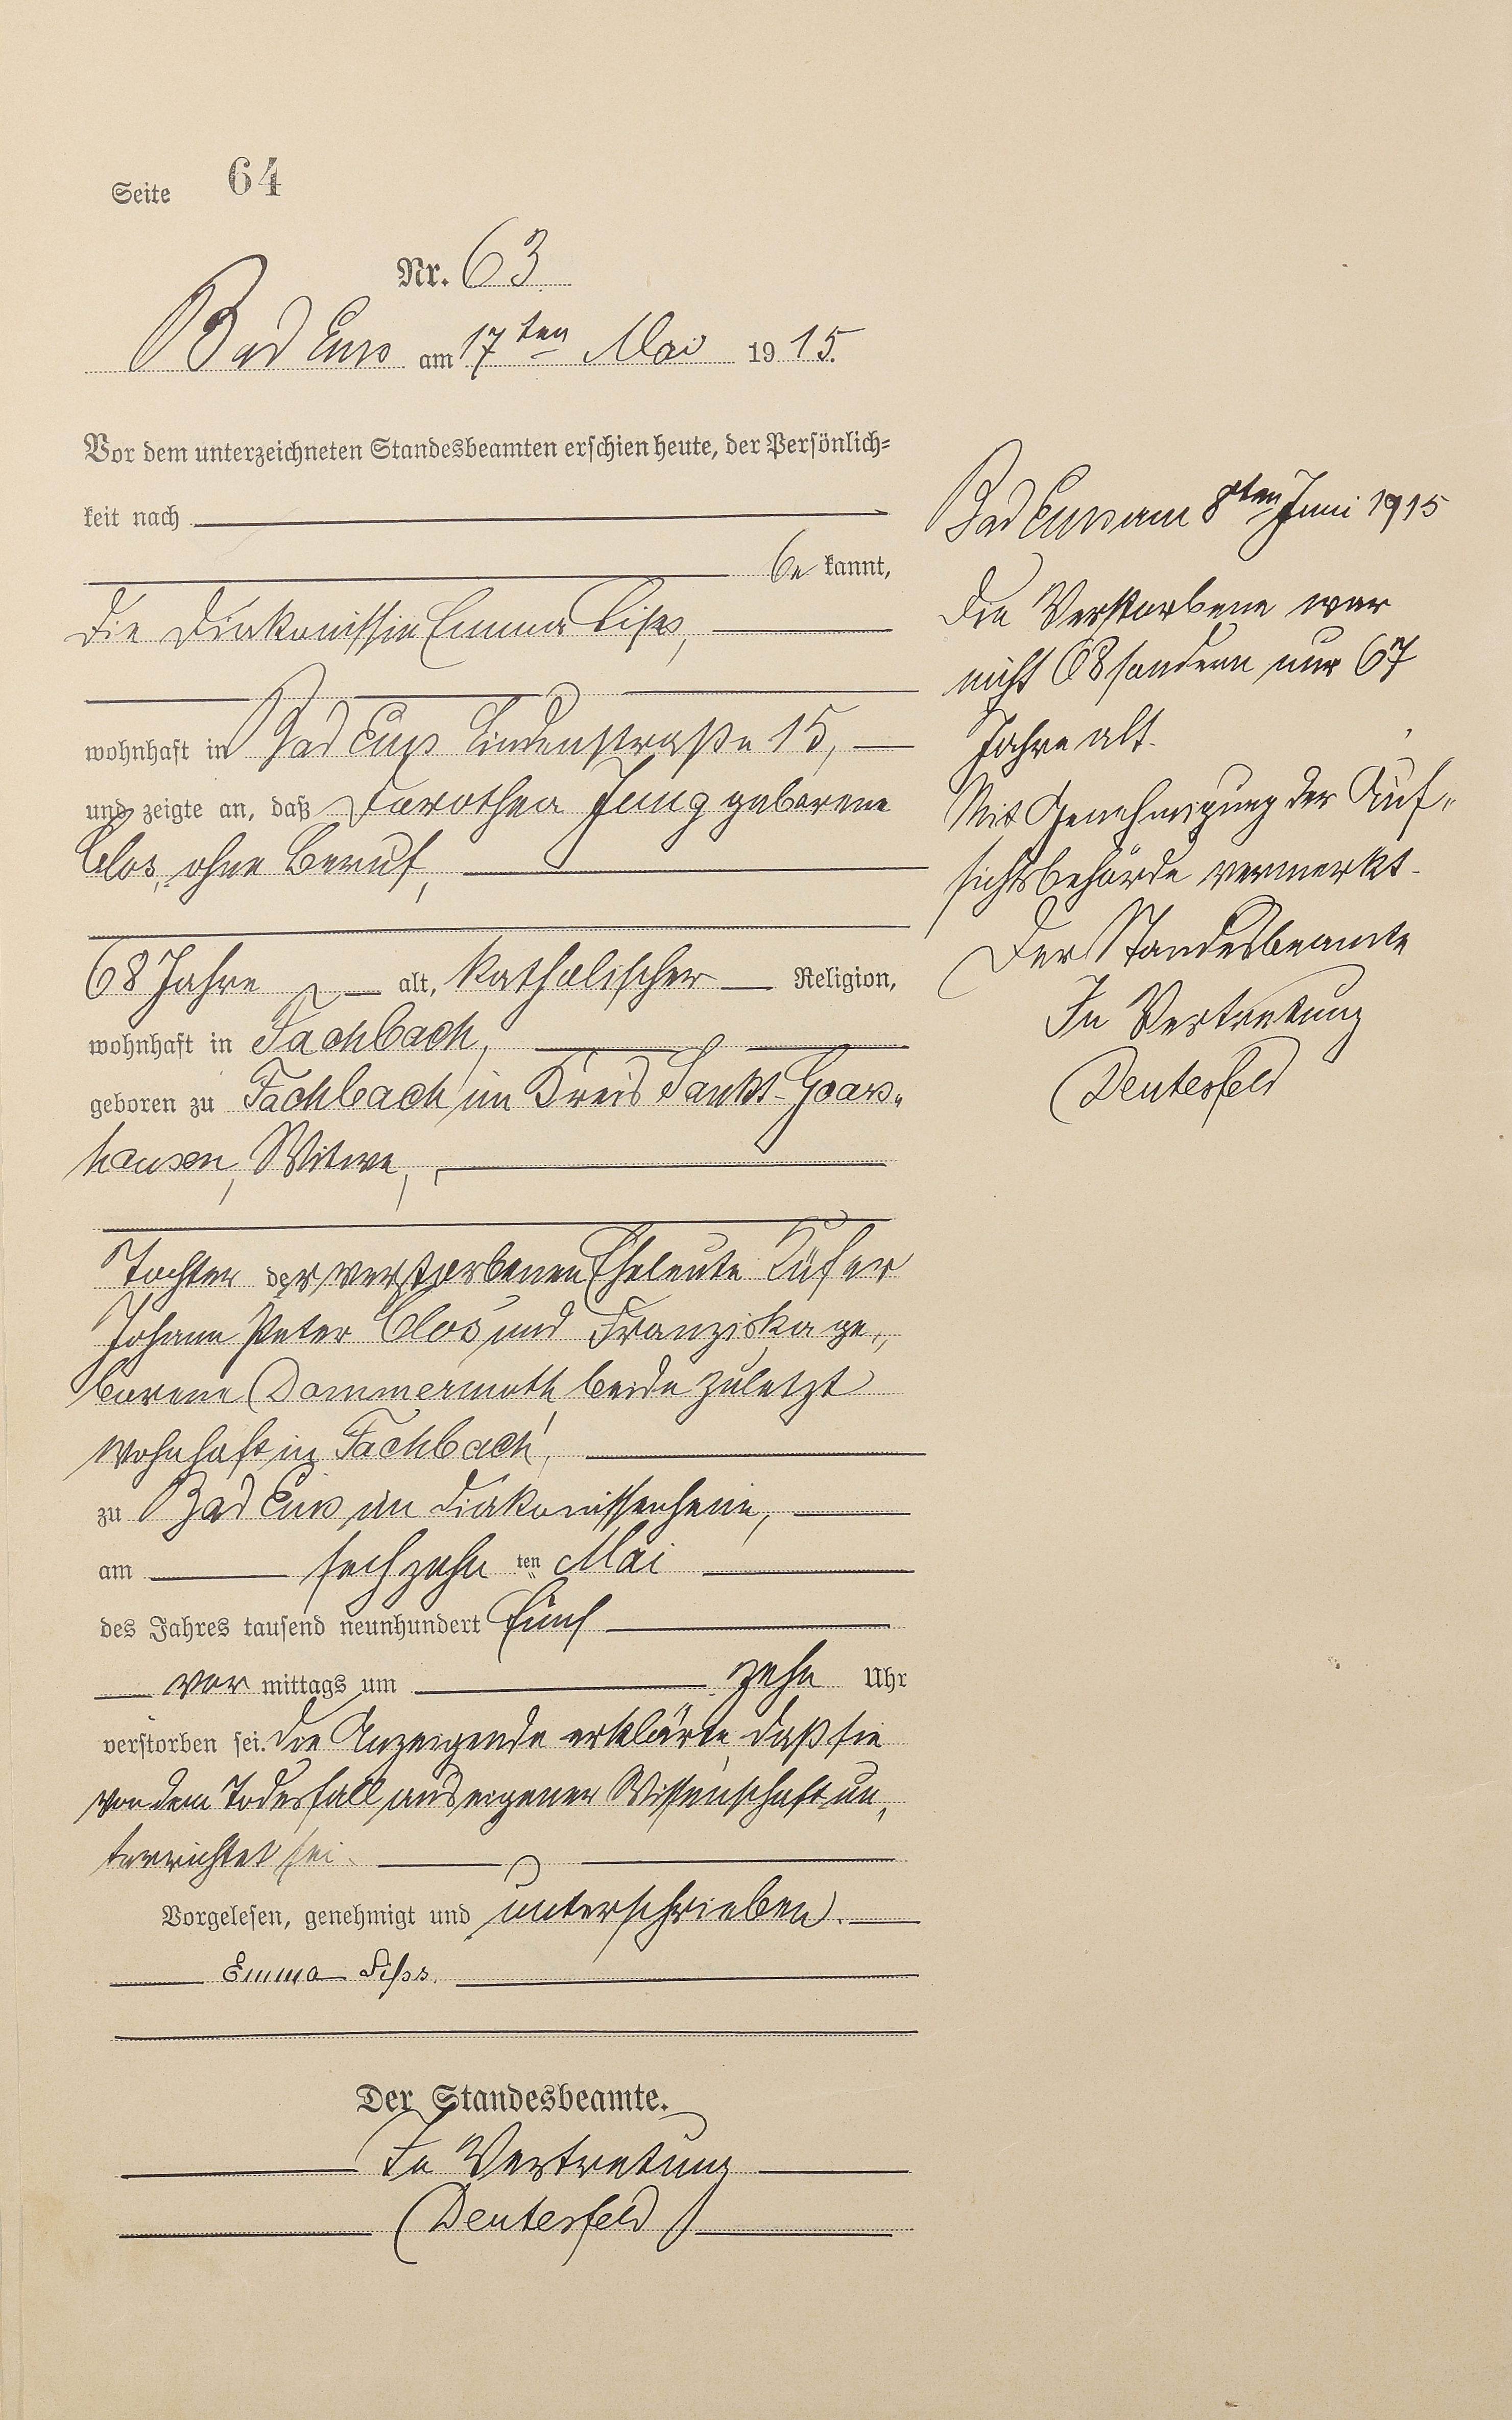 Seite 64
Nr. 63
Bad Ems am 17ten Mai 1915.
Vor dem unterzeichneten Standesbeamten erschien heute, der Persönlich=
keit nach
be kannt,
die Diakonissin Emma
wohnhaft in Bad Ems Lindenstraße 15,
und zeigte an, daß Dorothea Jung geborene
Clos, ohne Beruf,
68 Jahre alt, katholischer Religion,
wohnhaft in Fachbach,
geboren zu Fachbach im Kreis Sankt-Goars-
hausen, Witwe,
Tochter der verstorbenen Eheleute Küfer
Johann Peter Clos und Franziska ge-
borene Dommermuth beide zuletzt
wohnhaft in Fachbach,
zu Bad Ems im Diakonissenheim,
am sechzehn ten Mai
des Jahres tausend neunhundert fünf
vor mittags um zehn Uhr
verstorben sei. Die Anzeigende erklärte, daß sie
von dem Todesfall aus eigener Wissenschaft un-
terrichtet sei.
Vorgelesen, genehmigt und unterschrieben.
Emma
Der Standesbeamte.
In Vertretung
Deutesfeld
Bad Ems am 8ten Juni 1915
Die Verstorbene war
nicht 68 sondern nur 67
Jahre alt.
Mit Genehmigung der Auf-
sichtsbehörde vermerkt.
Der Standesbeamte
In Vertretung
Deutesfeld